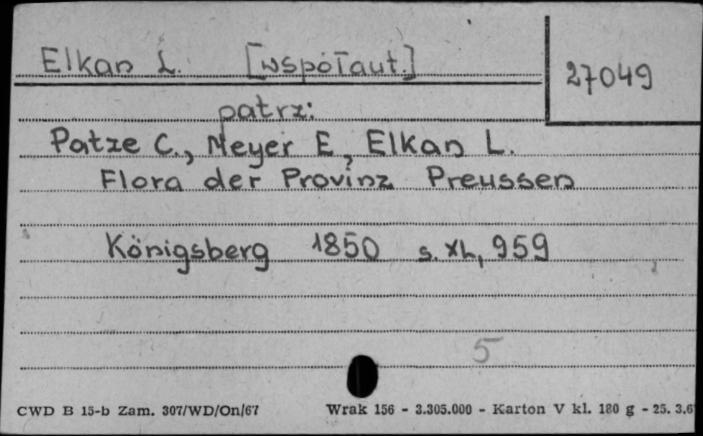 Elkan L. [współaut.]
27049
patrz:
Patze C., Meyer E, Elkan L.
Flora der Provinz Preussen
Königsberg 1850 s. XL, 959
5
CWD B 15-b Zam. 307/WD/On/67 Wrak 156 - 3.305.000 - Karton V kl. 180 g - 25. 3.6